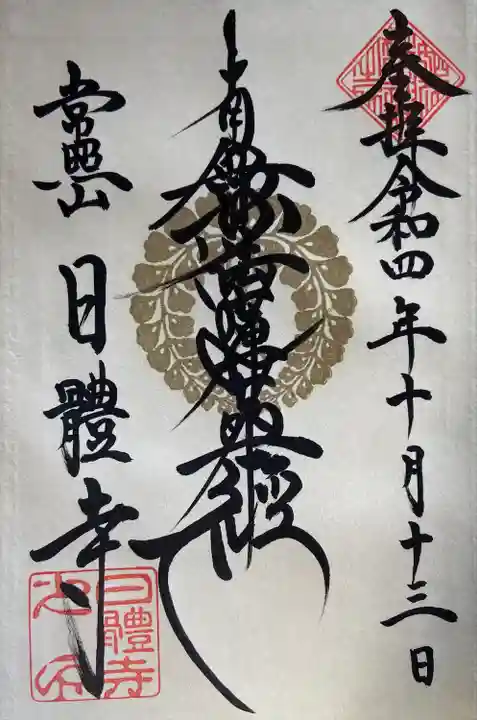 奉拝 令和四年十月十三日
南無妙法蓮華經
常照山 日體寺
日體寺之印